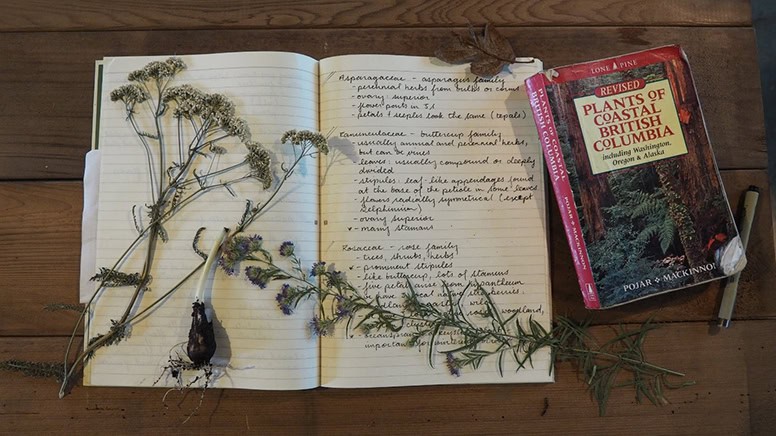 Asparagaceae - asparagus family
- perennial herbs from bulbs or corms
- ovary: superior
- flower parts in 3s
- petals + sepals look the same (tepals)
Ranunculaceae - buttercup family
- usually annual and perennial herbs,
but can be vines
- leaves: usually compound or deeply
divided
- stipules: leaf-like appendages found
at the base of the petiole in some leaves
- flowers radially symmetrical (except
Delphinium)
- ovary superior
- many stamens
Rosaceae - rose family
- trees, shrubs, herbs
- prominent stipules
- like buttercup, lots of stamens
five petals arise from hypanthium
native strawberries:
woodland,
important for
LONE PINE
REVISED
PLANTS OF
COASTAL
BRITISH
COLUMBIA
including Washington,
Oregon & Alaska
POJAR MACKINNON
PLANTS OF COASTAL
BRITISH COLUMBIA
POJAR MACKINNON